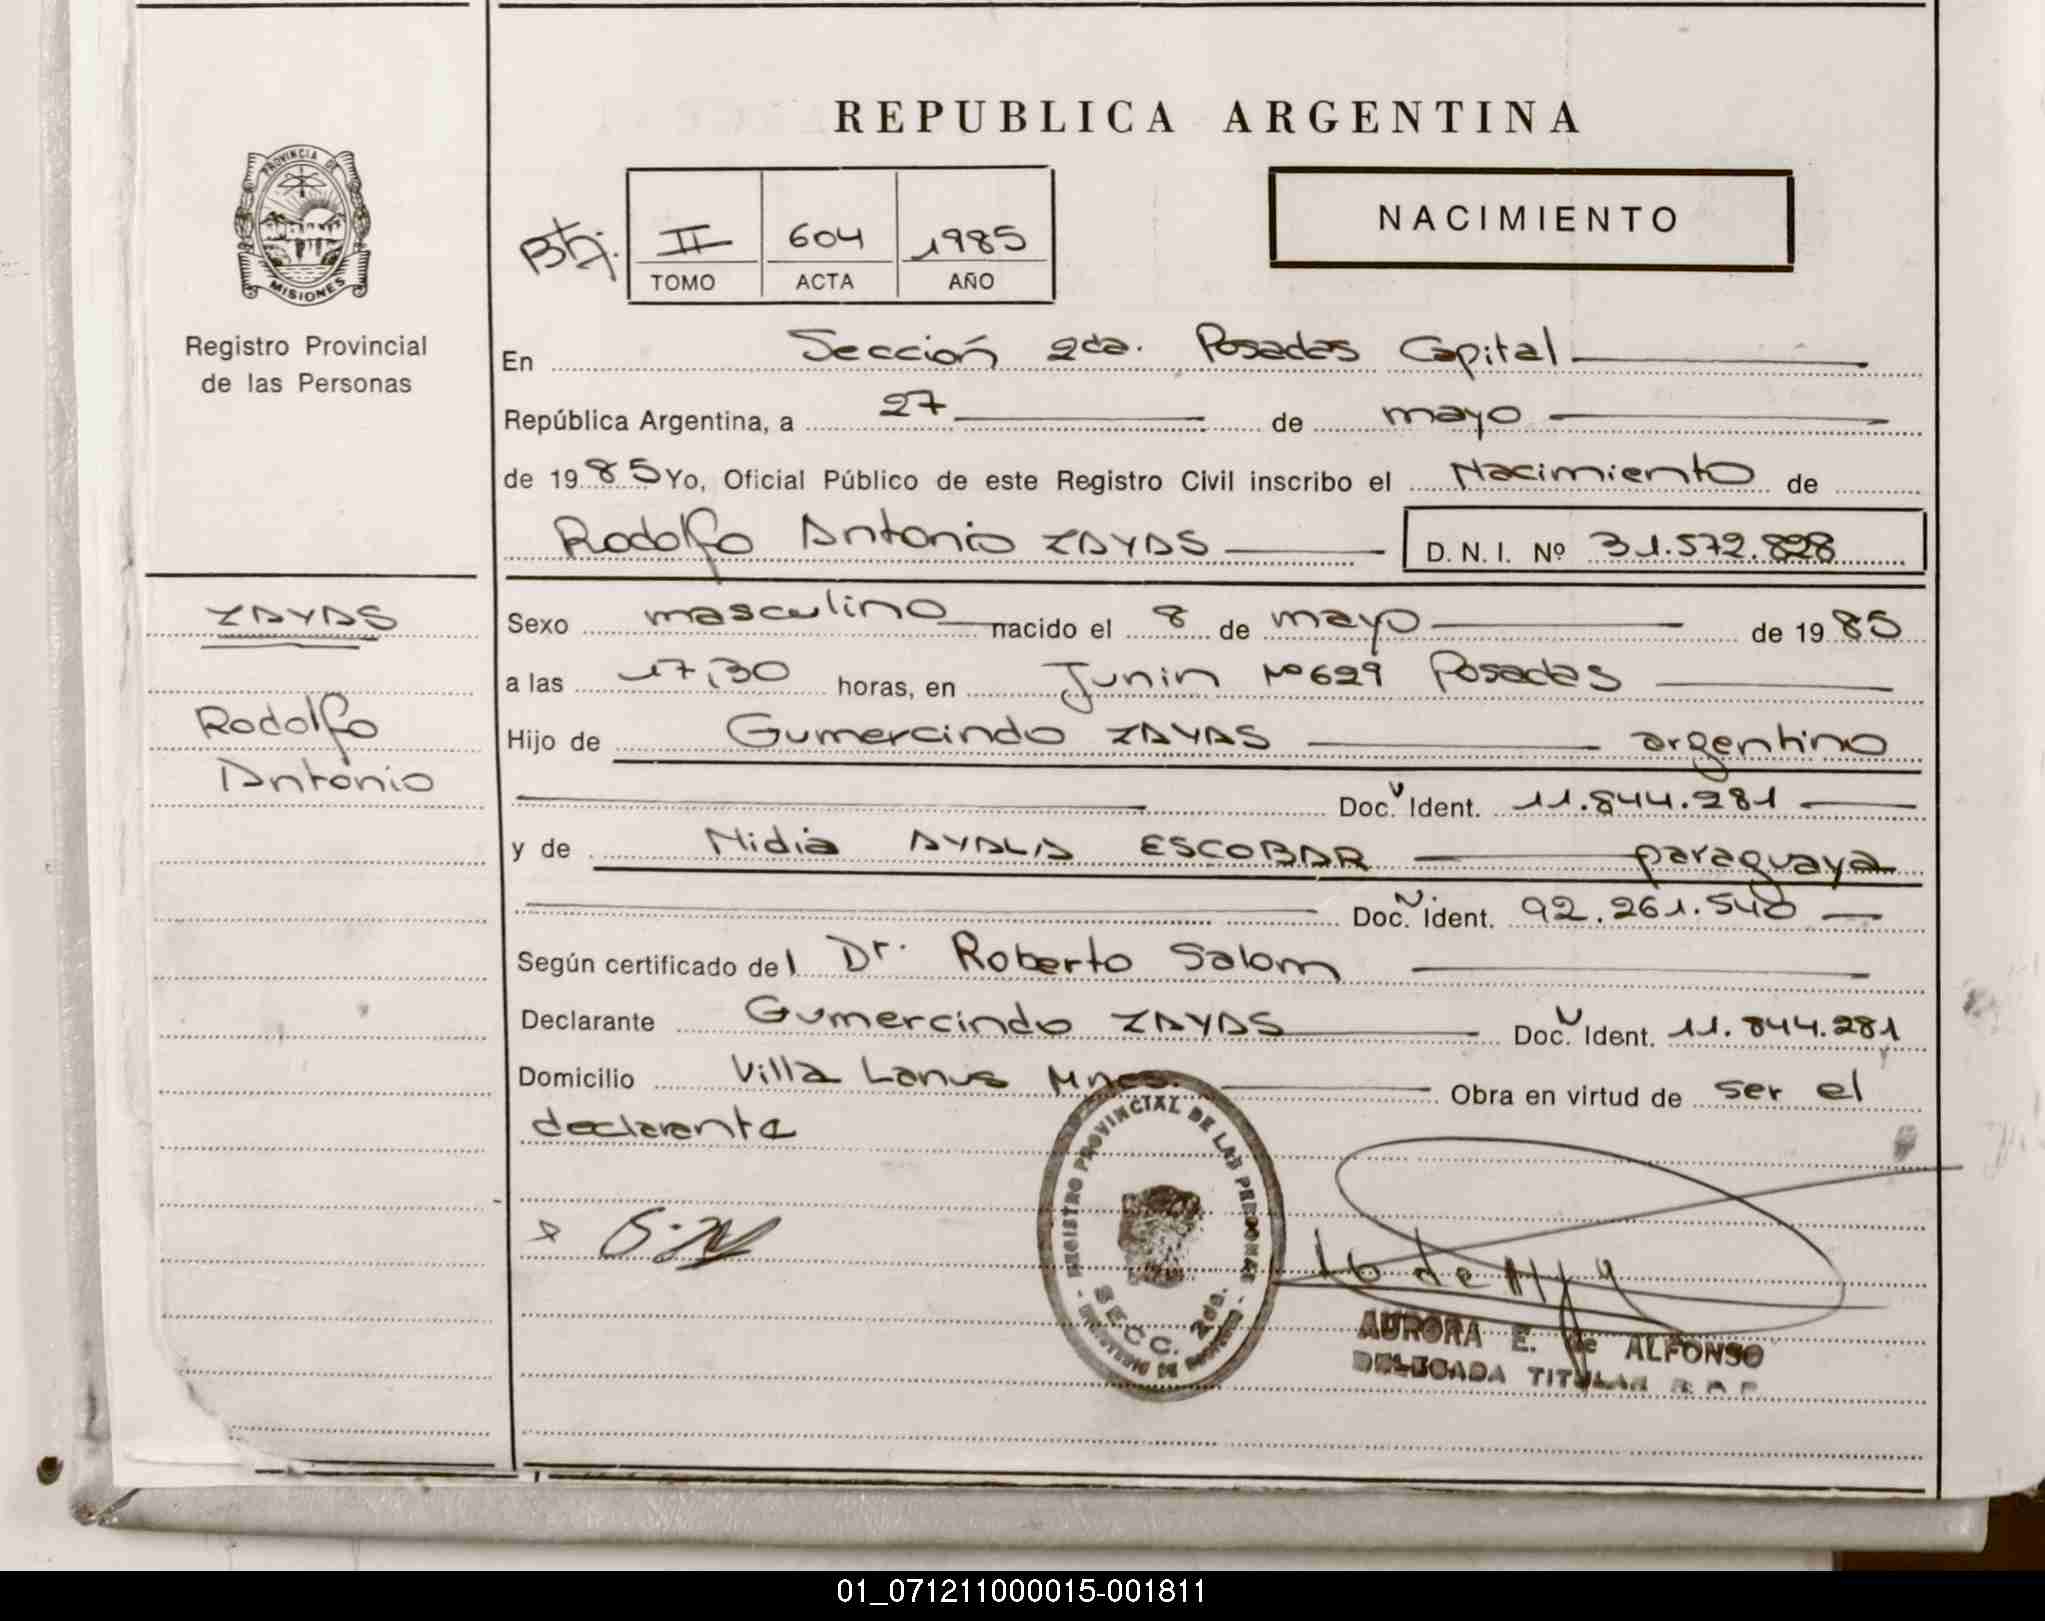 REPUBLICA ARGENTINA
PROVINCIA DE
MISIONES
Registro Provincial
de las Personas
NACIMIENTO
Btj. II 604 1985
TOMO ACTA AÑO
En Sección 2da. Posadas Capital
República Argentina, a 27 de mayo
de 1985 Yo, Oficial Público de este Registro Civil inscribo el Nacimiento de
Rodolfo Antonio ZAYAS D.N.I. Nº 31.572.828
ZAYAS
Rodolfo
Antonio
Sexo masculino nacido el 8 de mayo de 1985
a las 17,30 horas, en Junin Nº 629 Posadas
Hijo de Gumercindo ZAYAS argentino
Doc. Ident. 11.844.281
y de Nidia AYALA ESCOBAR paraguaya
Doc. Ident. 92.261.540
Según certificado del Dr. Roberto Salom
Declarante Gumercindo ZAYAS Doc. Ident. 11.844.281
Domicilio Villa Lanus Mnes. Obra en virtud de ser el
declarante
REGISTRO PROVINCIAL DE LAS PERSONAS
SECC. 2da.
AURORA E. de ALFONSO
DELEGADA TITULAR R.P.P.
01_071211000015-001811